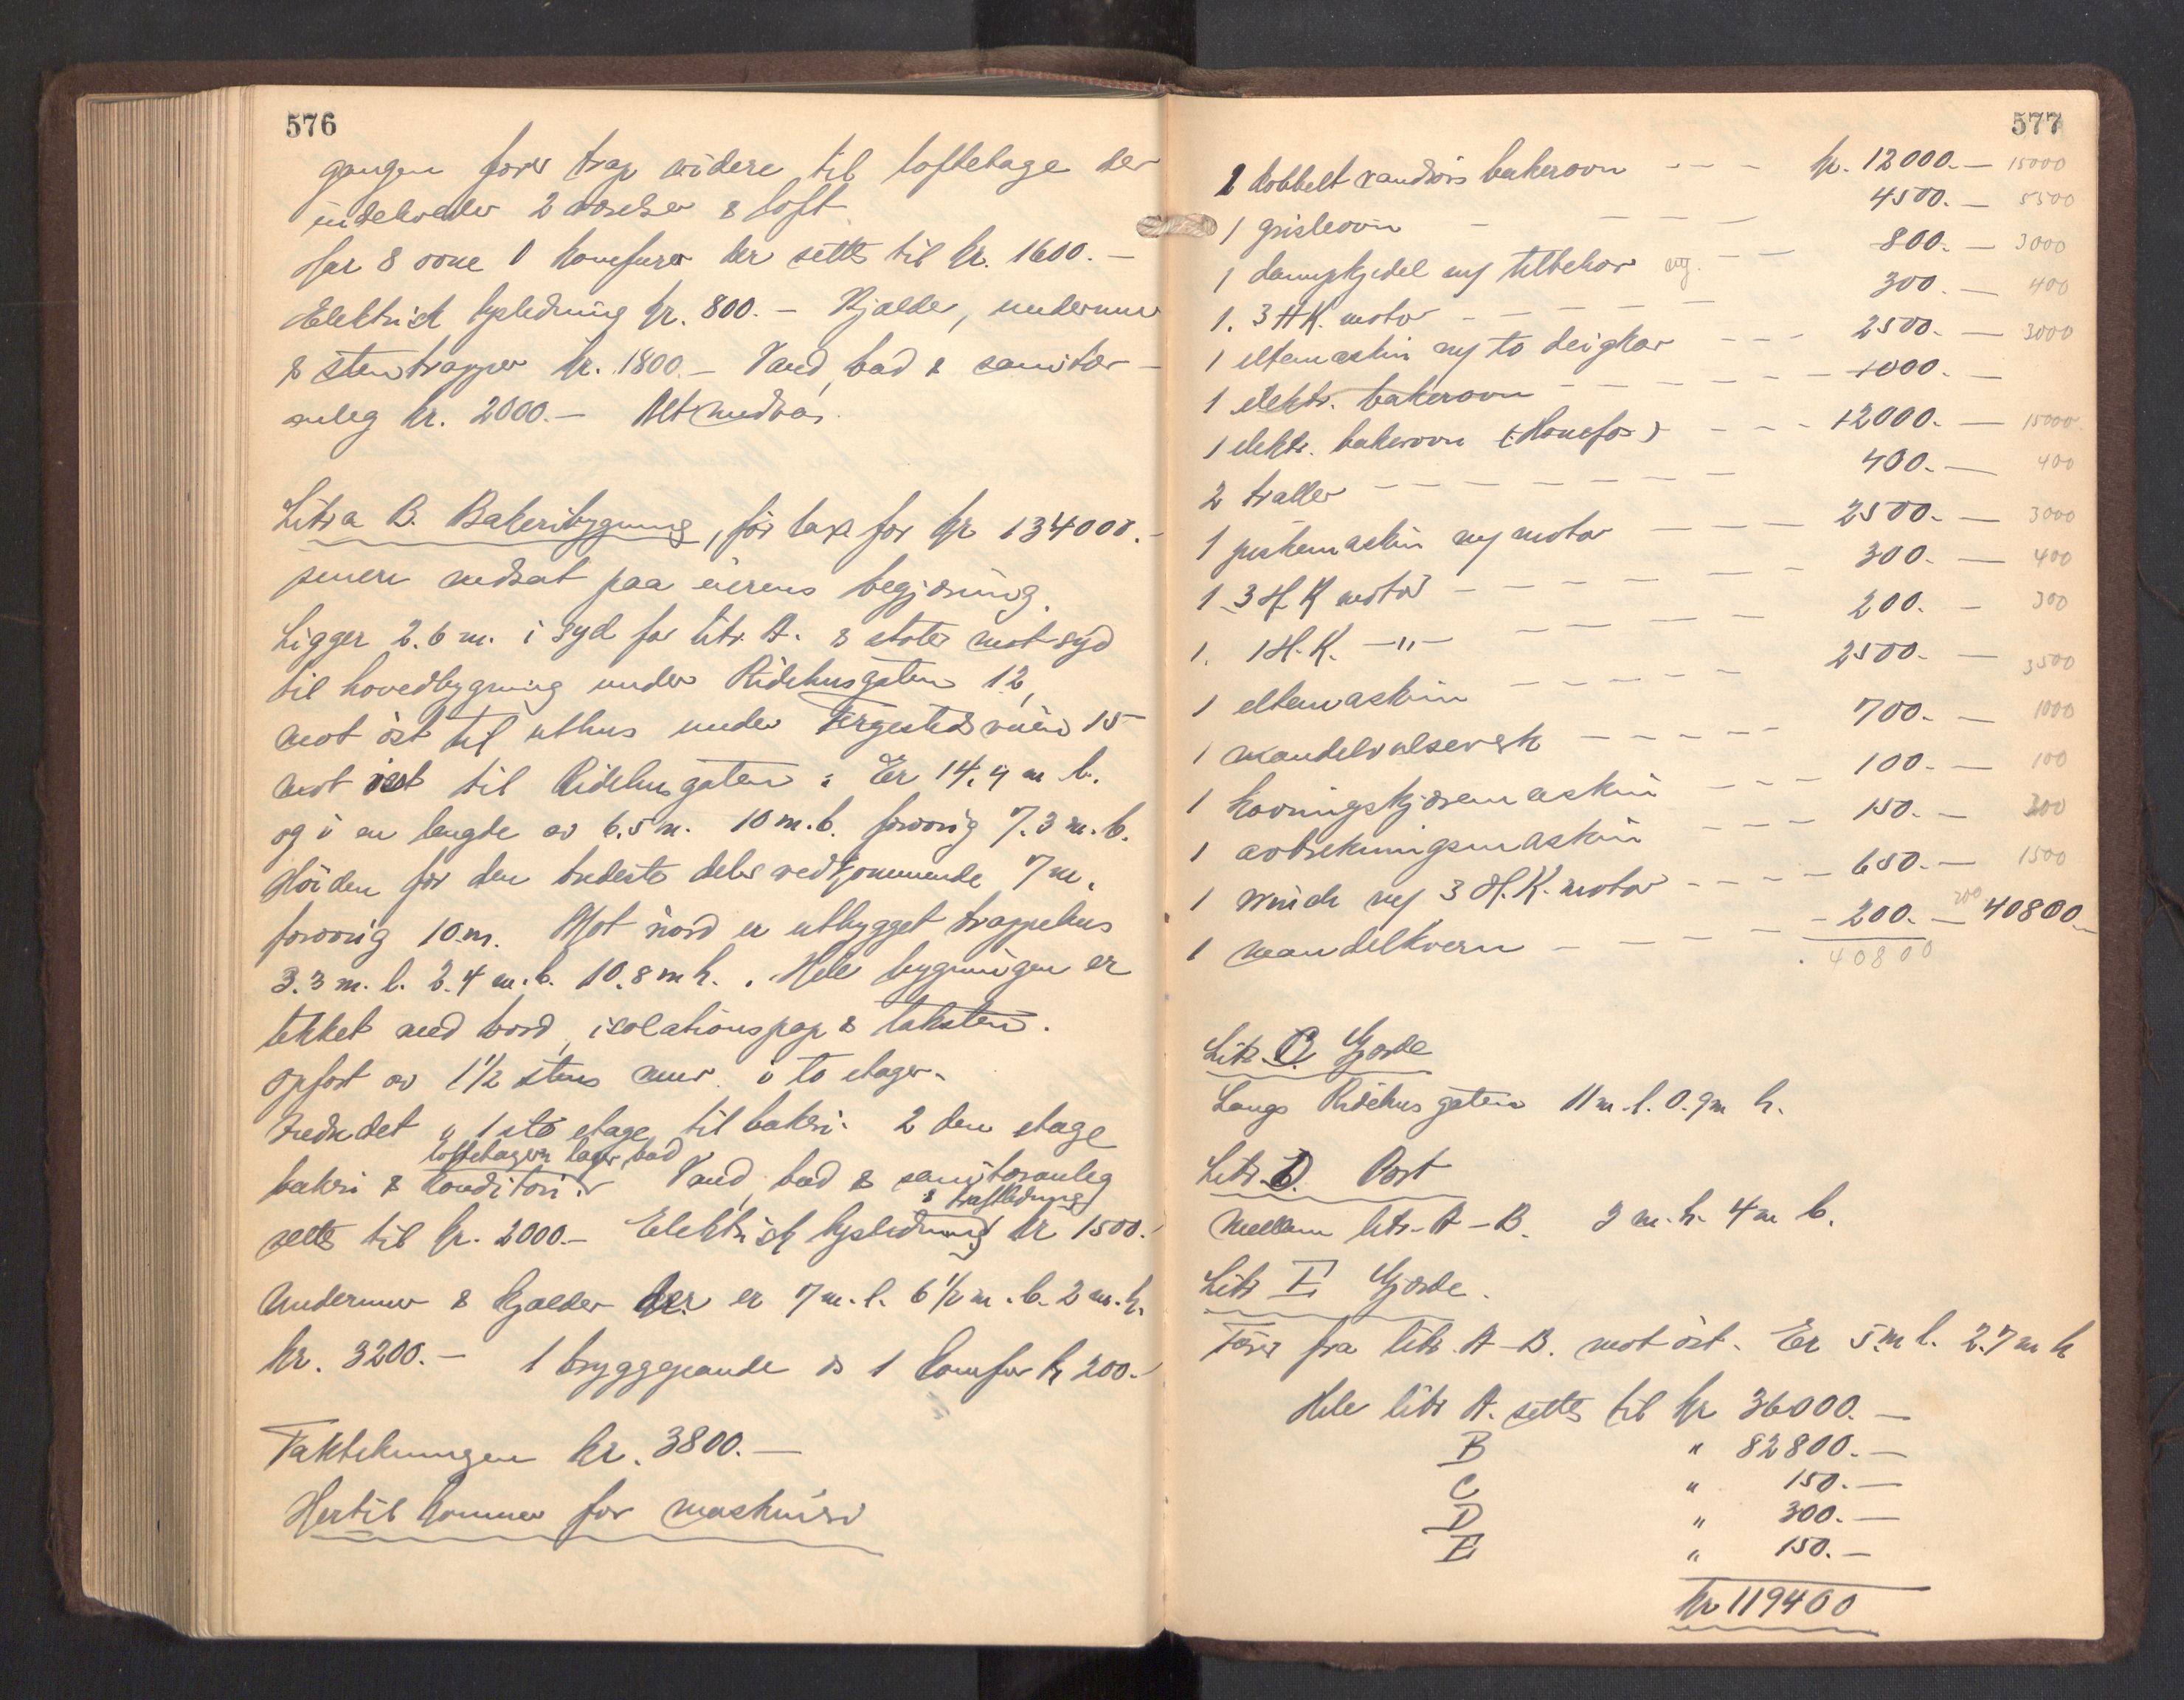 576
gangen fører trap videre til loftetage der
indeholder 2 værelser & loft.
Har 8 ovne 1 komfurer der settes til kr. 1600.—
Elektrisk lysledning kr. 800.— Kjælder, undermur
& stentrapper kr. 1800.— Vand, bad & sanitær-
anleg kr. 2000.— Alt medraa.
Litra B. Bakeribygning, før taxt for kr 134000.—
senere nedsat paa eierens begjæring.
Ligger 2.6 m. i syd for litr. A. & støter mot syd
til hovedbygning under Ridehusgaten 12,
mot øst til uthus under Fergestedsveien 15
mot vest til Ridehusgaten. Er 14.4 m l.
og i en lengde av 6.5 m. 10 m. b. forøvrig 7.3 m. b.
Høiden for den bredeste dels vedkommende 7 m.
forøvrig 10 m. Mot nord er utbygget trappehus
3.3 m. l. 2.4 m. b. 10.8 m h. Hele bygningen er
tekket med bord, isolationspap & taksten.
Opført av 1½ stens mur i to etager.
Indredet i 1ste etage til bakeri. 2 den etage
loftetagen lager, bad
bakeri & konditori. Vand, bad & sanitæranleg
& kraftledning
settes til kr. 2000.— Elektrisk lysledning kr 1500.—
Undermur & kjælder der er 7 m. l. 6½ m. b. 2 m. h.
kr. 3200.— 1 bryggepande & 1 komfur kr 200.—
Taktekningen kr. 3800.—
Hertil kommer for maskineri
577
1 dobbelt vandrørs bakerovn — — — kr. 12000.— 15000
1 grisleovn — — — — 4500.— 5500
1 dampkjedel m/ tilbehør — — 800.— 3000
1. 3 H.K. motor — — — — 300.— 400
1 eltemaskin m/ to deigkar — — — 2500.— 3000
1 elektr. bakerovn — — — — 1000.—
1 elektr. bakerovn (Hønefos) — — — 12000.— 15000
2 traller — — — — — 400.— 400
1 piskemaskin m/ motor — — — 2500.— 3000
1 3 H.K motor — — — — 300.— 400
1. 1 H.K. —"— — — — — 200.— 300
1 eltemaskin — — — — 2500.— 3500
1 mandelvalseverk — — — — 700.— 1000
1 kavringskjæremaskin — — — 100.— 100
1 avtrekningsmaskin — — — 150.— 300
1 m/ 3 H.K. motor — — — 650.— 1500
1 mandelkvern — — — — 200.— 200 40800.—
40800
Litr. C. Gjerde
Langs Ridehusgaten 11 m. l. 0.9 m h.
Litr. D. Port
mellem litr. A – B. 3 m. h. 4 m b.
Litr E Gjerde.
Fører fra litr. A – B. mot øst. Er 5 m l. 2.7 m h
Hele litr A. settes til kr 36000.—
B " 82800.—
C " 150.—
D " 300.—
E " 150.—
kr 119400